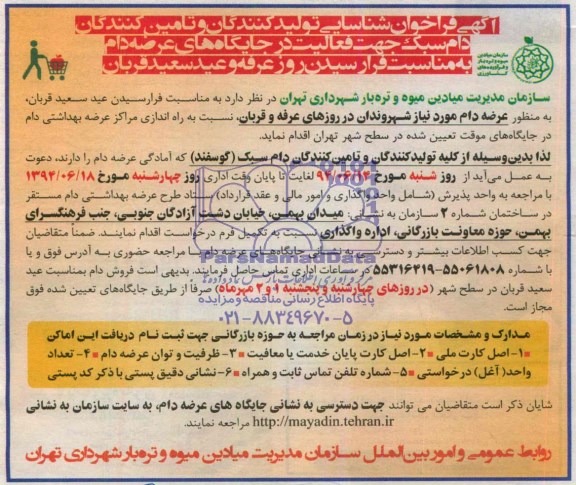 آگهی فراخوان شناسایی تولیدکنندگان و تامین کنندگان
دام سبک جهت فعالیت در جایگاه‌های عرضه دام
به مناسبت فرا رسیدن روز عرفه و عید سعید قربان
سازمان مدیریت میادین میوه و تره‌بار شهرداری تهران در نظر دارد به مناسبت فرارسیدن عید سعید قربان،
به منظور عرضه دام مورد نیاز شهروندان در روزهای عرفه و قربان، نسبت به راه اندازی مراکز عرضه بهداشتی دام
در جایگاه‌های موقت تعیین شده در سطح شهر تهران اقدام نماید.
لذا بدین‌وسیله از کلیه تولیدکنندگان و تامین‌کنندگان دام سبک (گوسفند) که آمادگی عرضه دام را دارند، دعوت
به عمل می‌آید از روز شنبه مورخ لغایت تا پایان وقت اداری روز چهارشنبه مورخ ۱۳۹۴/۰۶/۱۸
با مراجعه به واحد پذیرش (شامل واحد واگذاری و امور مالی و عقد قرارداد) ستاد طرح عرضه بهداشتی دام مستقر
در ساختمان شماره ۲ سازمان به نشانی: میدان بهمن، خیابان دشت آزادگان جنوبی، جنب فرهنگسرای
بهمن، حوزه معاونت بازرگانی، اداره واگذاری نسبت به تکمیل فرم درخواست اقدام نمایند. ضمناً متقاضیان
جهت کسب اطلاعات بیشتر و دسترسی به نشانی جایگاه‌های عرضه دام با مراجعه حضوری به آدرس فوق و یا
با شماره ۵۵۰۶۱۸۰۸-۵۵۳۱۶۴۱۹ در ساعات اداری تماس حاصل فرمایند. بدیهی است فروش دام بمناسبت عید
سعید قربان در سطح شهر (در روزهای چهارشنبه و پنجشنبه ۱ و ۲ مهرماه) صرفاً از طریق جایگاه‌های تعیین شده فوق
مجاز است.
ParsNamadData
پایگاه اطلاع رسانی مناقصه و مزایده
۰۲۱-۸۸۳۴۹۶۷۰-۵
مدارک و مشخصات مورد نیاز در زمان مراجعه به حوزه بازرگانی جهت ثبت نام دریافت این اماکن
۱-اصل کارت ملی ۲-اصل کارت پایان خدمت یا معافیت ۳-ظرفیت و توان عرضه دام ۴-تعداد
واحد( آغل) درخواستی ۵-شماره تلفن تماس ثابت و همراه ۶-نشانی دقیق پستی با ذکر کد پستی
شایان ذکر است متقاضیان می توانند جهت دسترسی به نشانی جایگاه های عرضه دام، به سایت سازمان به نشانی
http://mayadin.tehran.ir مراجعه نمایند.
روابط عمومی و امور بین‌الملل سازمان مدیریت میادین میوه و تره‌بار شهرداری تهران